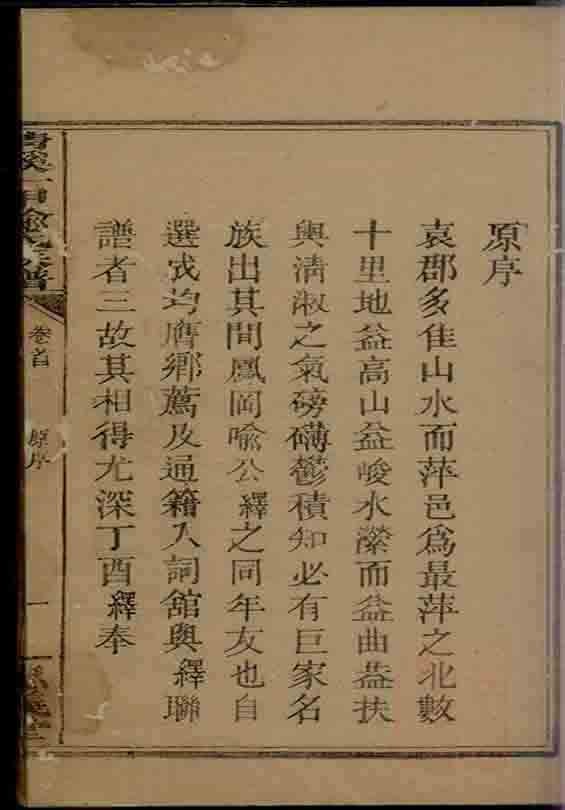 原序
袁郡多佳山水而萍邑爲最萍之北數
十里地益高山益峻水瀠而益曲葢扶
輿清淑之氣磅礴鬱積知必有巨家名
族出其間鳳岡喻公繹之同年友也自
選戌均膺鄉薦及通籍入詞舘與繹聯
譜者三故其相得尤深丁酉繹奉
喻氏族譜
卷首
原序
一